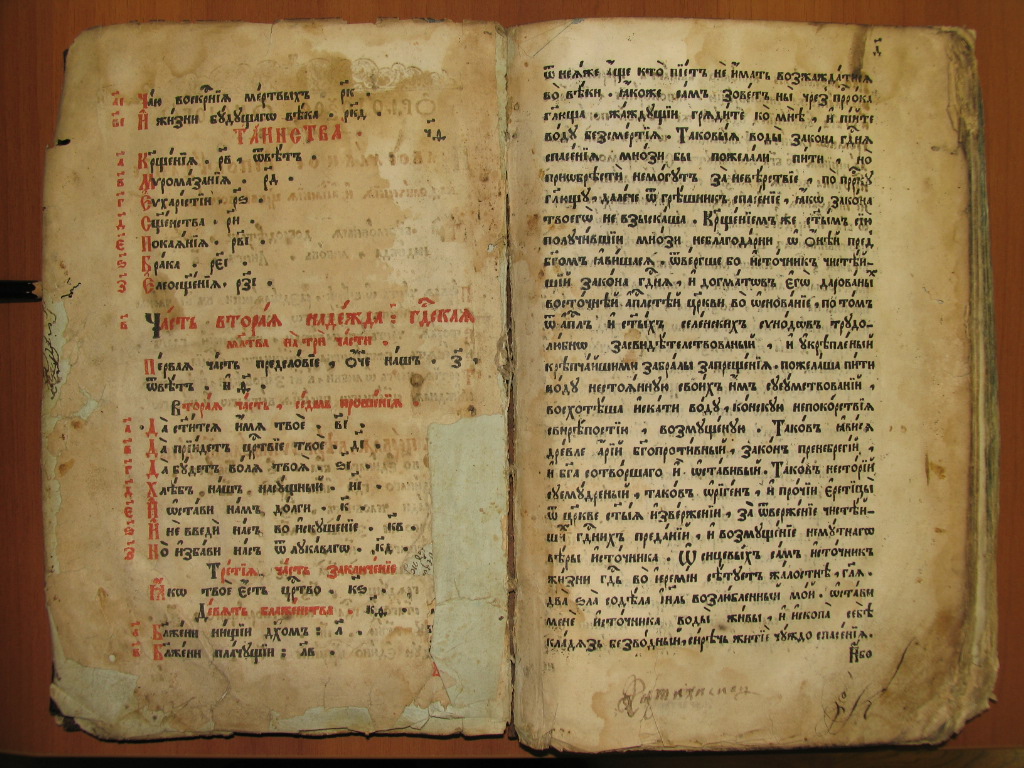 аі Чаю воскр҃нїѧ ме́ртвыхъ . р҃к .
ві И҆ жи́зни бꙋ́дꙋщагѡ вѣ́ка . р҃кд .
ТАИНСТВА .
а҃ Кр҃ще́нїѧ . р҃в , ѿвѣ́тъ .
в҃ Мѵрома́занїѧ . р҃д .
г҃ Е҆ѵхарі́стїи . р҃ѕ .
д҃ Сщ҃е́нства . р҃и .
є҃ Покаѧ́нїѧ . р҃ві .
ѕ҃ Бра́ка . р҃єі .
з҃ Е҆леосщ҃е́нїѧ . р҃зі .
в҃ Ча́сть втора́ѧ наде́жда : гд҃скаѧ
мл҃тва на̀ три ча́сти .
Пе́рваѧ ча́сть предсло́вїе , ѻ҆́ч҃е на́шъ . з҃ .
ѿвѣ́тъ . и҃ д҃ .
Втора́ѧ ча́сть , се́дмь проше́нїѧ .
а҃ Да ст҃и́тсѧ и҆́мѧ твоѐ . в҃і .
в҃ Да прїи́детъ цр҃твїе твоѐ . д҃і
г҃ Да бꙋ́детъ во́лѧ твоѧ̀ . ѕ҃і .
д҃ Хлѣ́бъ на́шъ насꙋ́щный . и҃і .
є҃ И҆ ѡ҆ста́ви на́мъ до́лги . к҃ .
ѕ҃ И҆ не введѝ на́съ во и҆скꙋше́нїе . к҃в .
з҃ Но и҆зба́ви на́съ ѿ лꙋка́вагѡ . к҃д .
Тре́тїѧ ча́сть заключе́нїе
Ꙗ҆́кѡ твоѐ є҆́сть цр҃тво . к҃ѕ .
Де́вѧть блаже́нства .
а҃ Блаже́ни ни́щїи дх҃омъ : л҃ .
в҃ Блаже́ни пла́чꙋщїи : л҃в .
д҃
ѿ неѧ́же а҆́ще кто̀ пїе́тъ не и҆́мать возжажда́тисѧ
во̀ вѣ́ки . ꙗ҆́коже са́мъ зове́тъ ны̀ чрез прⷪ҇ро́ка
гл҃юща , жа́ждꙋщїи грѧди́те ко мнѣ̀ , и҆ пі́йте
во́дꙋ безсме́ртїѧ . Таковы́ѧ воды̀ зако́на гдⷭ҇нѧ
спасе́нїѧ мно́зи бы пожела́ли пи́ти , но
прїѡбрѣ́сти немо́гꙋтъ за невѣ́рствїе , по прⷪ҇рⷪ҇кꙋ
гл҃ющꙋ , дале́че ѿ грѣ́шникъ спасе́нїе , ꙗ҆́кѡ зако́на
твоегѡ̀ не взыска́ша . Кр҃ще́нїемъ же ст҃ы́мъ сїю̀
полꙋчи́вшїи мно́зи неблагода́рни ѡ҆ ѻ҆́ней пред
бг҃омъ ꙗ҆ви́шасѧ , ѿве́ргше бо и҆сто́чникъ чистѣ́й-
шїй зако́на гдⷭ҇нѧ , и҆ догма́тѡвъ є҆гѡ̀ дарова́ныⷯ
восто́чнѣй а҆пⷭ҇лстѣй цр҃кви во ѡ҆снова́нїе , по то́мъ
ѿ а҆пⷭ҇лъ и҆ ст҃ы́хъ селе́нскихъ сѵно́дѡвъ трꙋдо-
лю́бнѡ засвидѣ́телствованый , и҆ ᲂу҆крѣ́пленый
крѣпча́йшими забра́лы запреще́нїѧ . пожела́ша пи́ти
во́дꙋ нестоѧ́ннꙋю свои́хъ и҆́мъ сꙋемꙋ́дствованїй ,
восхотѣ́ша и҆ска́ти во́дꙋ , ко́нскꙋю непоко́рствїѧ
свирѣ́постїю , возмꙋще́нꙋю . Тако́въ ꙗ҆ви́сѧ
дре́вле а҆́рїй бг҃опроти́вный , зако́нъ пренебре́гїй ,
и҆ бг҃а сотво́ршаго и҆̀ ѡ҆ста́вивый . Тако́въ несто́рїй
сꙋемꙋ́дреный , тако́въ ѡ҆ріге́нъ , и҆ про́чїи є҆ретицы̀
ѿ цр҃кве ст҃ы́ѧ и҆зве́ржени , за̀ ѿверже́нїе чистѣ́й-
шиⷯ гдⷭ҇нихъ преда́нїй , и҆ возмꙋще́нїе немꙋ́тнагѡ
вѣ́ры и҆сто́чника . Ѿ сицевы́хъ са́мъ и҆сто́чникъ
жи́зни гд҃ь во і҆еремі́и сѣ́тꙋетъ жа́лостнѣ , гл҃ѧ .
два̀ ѕла̀ содѣ́ла і҆и҃ль возлю́бленный мо́й . ѡ҆ста́ви
менѐ и҆сто́чника воды̀ жи́вы , и҆ и҆скопа̀ себѣ̀
кла́дѧзь безво́дный , си́рѣчь житїѐ чꙋ́ждо спасе́нїѧ .
И҆́бо